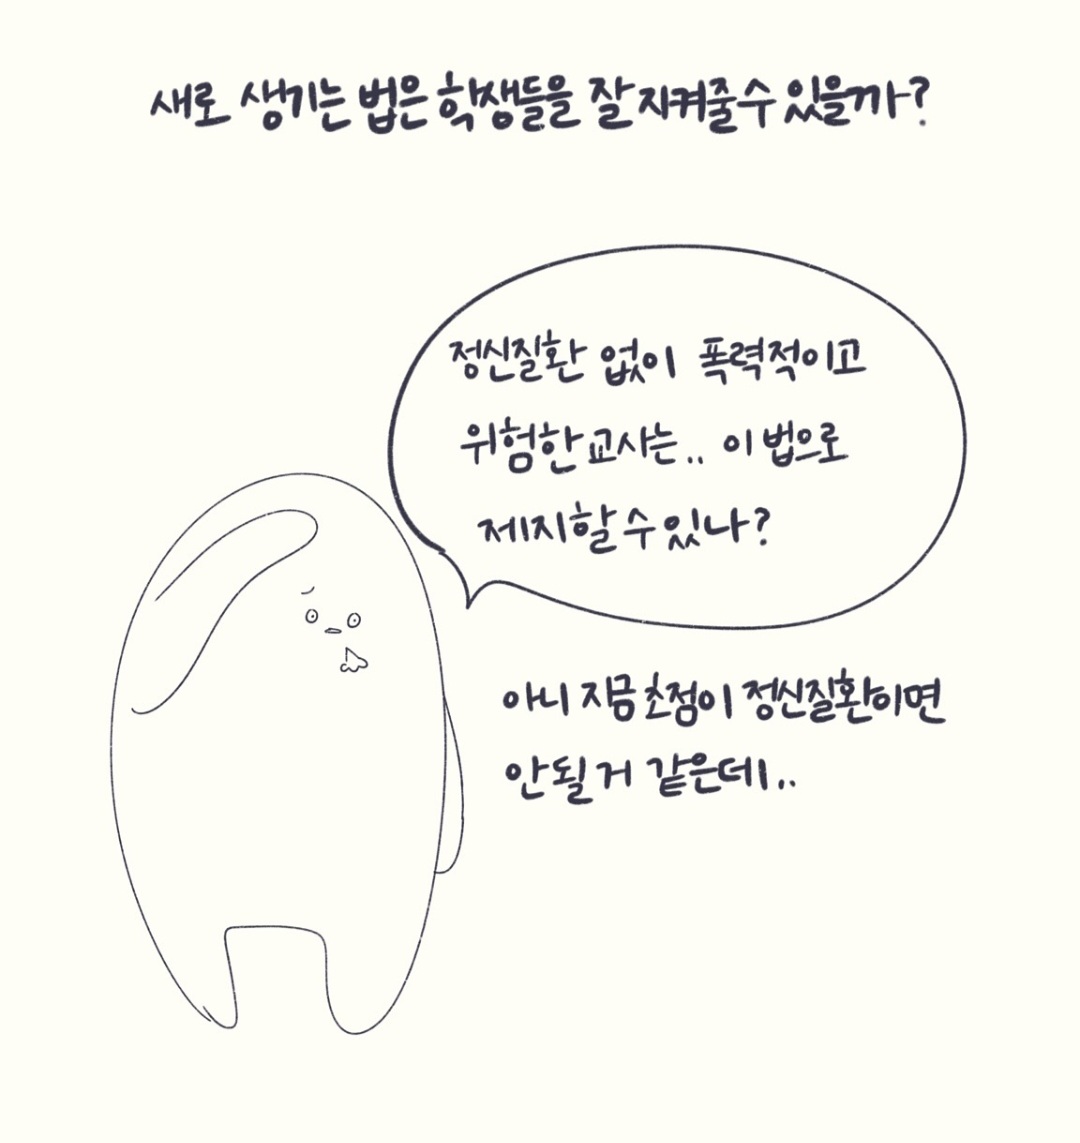 새로 생기는 법은 학생들을 잘 지켜줄 수 있을까?
정신질환 없이 폭력적이고
위험한 교사는.. 이 법으로
제지할 수 있나?
아니 지금 초점이 정신질환이면
안될 거 같은데..